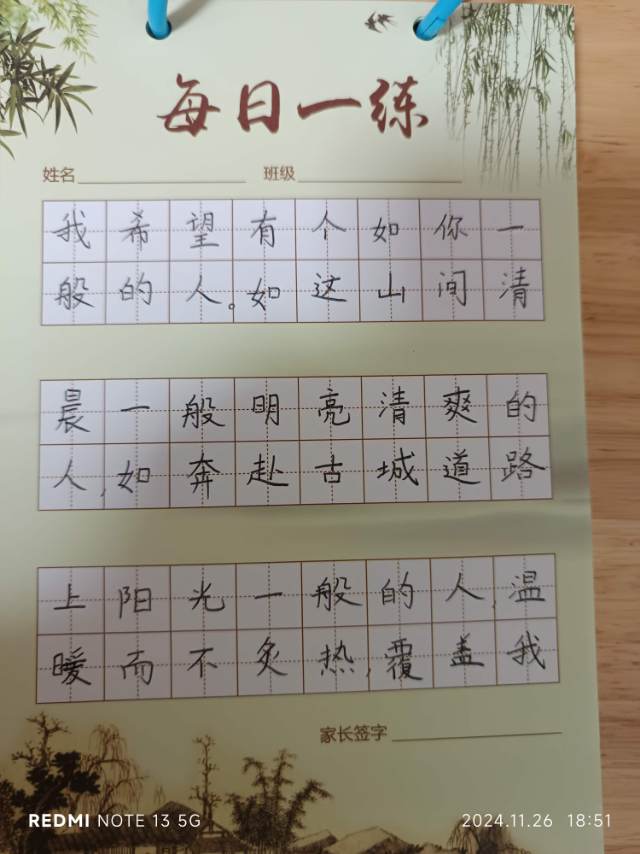 每日一练
姓名 班级
我希望有个如你一
般的人。如这山间清
晨一般明亮清爽的
人,如奔赴古城道路
上阳光一般的人,温
暖而不炙热,覆盖我
家长签字
REDMI NOTE 13 5G 2024.11.26 18:51